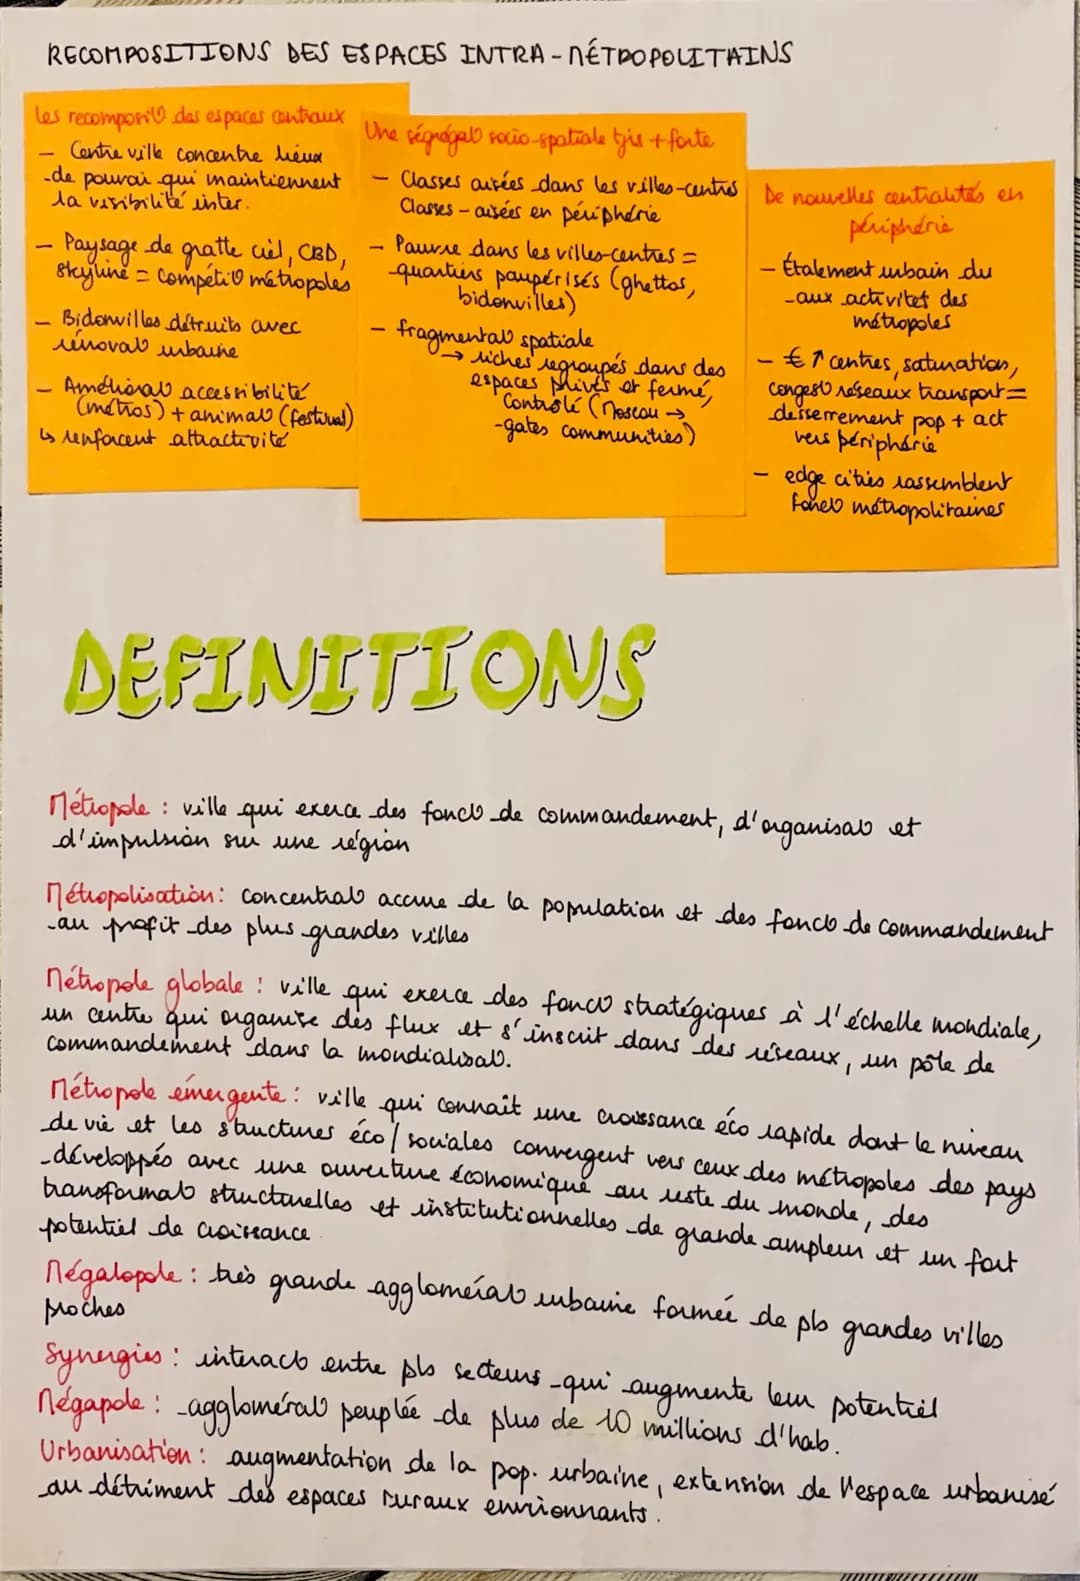 RECOMPOSITIONS DES ESPACES INTRA-MÉTROPOLITAINS
Les recomposit° des espaces centraux
- Centre ville concentre lieux
de pouvoir qui maintiennent
la visibilité inter.
- Paysage de gratte ciel, CBD,
skyline = compétit° métropoles
- Bidonvilles détruits avec
rénovat° urbaine
- Améliorat° accessibilité
(métros) + animat° (festival)
↳ renforcent attractivité
Une ségrégat° socio-spatiale tjrs + forte
- Classes aisées dans les villes-centres
Classes - aisées en périphérie
- Pauvre dans les villes-centres =
quartiers paupérisés (ghettos,
bidonvilles)
- fragmentat° spatiale
→ riches regroupés dans des
espaces privés et fermé,
contrôlé (Moscou →
gates communities)
De nouvelles centralités en
périphérie
- Étalement urbain du
aux activités des
métropoles
- € ↑ centres, saturation,
congest° réseaux transport =
desserrement pop + act
vers périphérie
- edge cities rassemblent
fonct° métropolitaines
DEFINITIONS
Métropole : ville qui exerce des fonct° de commandement, d'organisat° et
d'impulsion sur une région
Métropolisation : concentrat° accrue de la population et des fonct° de commandement
au profit des plus grandes villes
Métropole globale : ville qui exerce des fonct° stratégiques à l'échelle mondiale,
un centre qui organise des flux et s'inscrit dans des réseaux, un pôle de
commandement dans la mondialisat°.
Métropole émergente : ville qui connaît une croissance éco rapide dont le niveau
de vie et les structures éco/sociales convergent vers ceux des métropoles des pays
développés avec une ouverture économique au reste du monde, des
transformat° structurelles et institutionnelles de grande ampleur et un fort
potentiel de croissance.
Mégalopole : très grande agglomérat° urbaine formée de pls grandes villes
proches
Synergies : interact° entre pls secteurs qui augmente leur potentiel
Mégapole : agglomérat° peuplée de plus de 10 millions d'hab.
Urbanisation : augmentation de la pop. urbaine, extension de l'espace urbanisé
au détriment des espaces ruraux envrionnants.